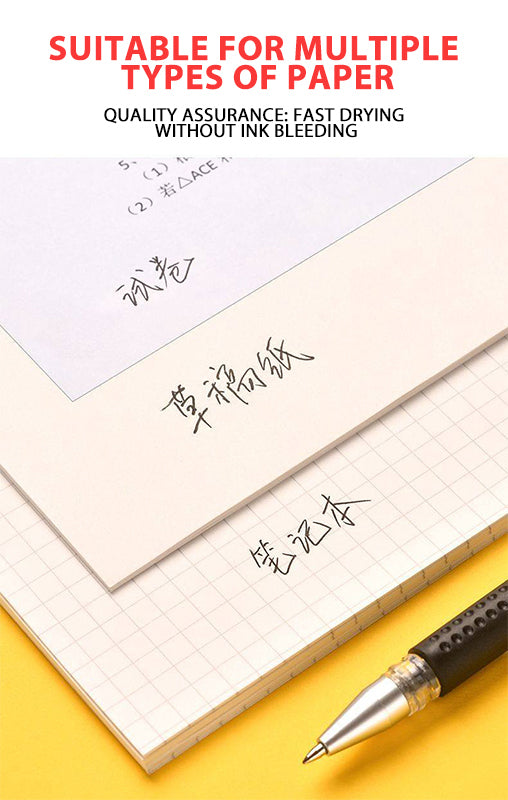 SUITABLE FOR MULTIPLE
TYPES OF PAPER
QUALITY ASSURANCE: FAST DRYING
WITHOUT INK BLEEDING
5、
(1)
(2) 若△ACE
试卷
草稿纸
笔记本